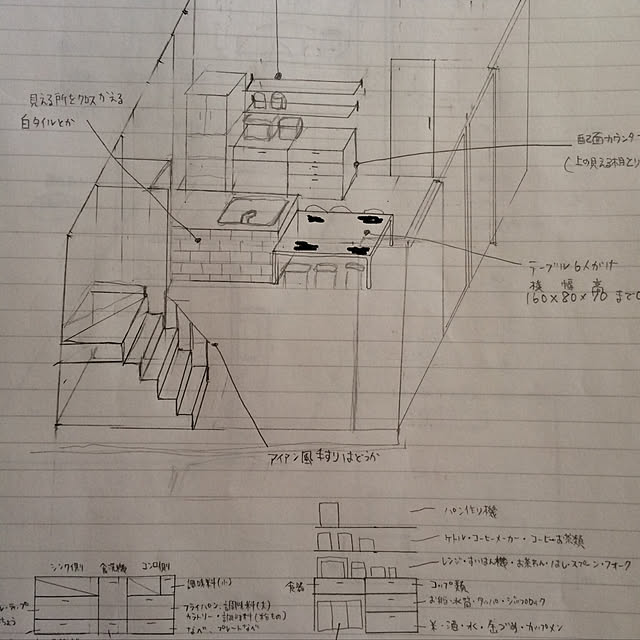 見える所をクロスかえる
白タイルとか
配面カウンター
(上の見える相とり
テーブル6人がけ
横 幅 高
160×80×70 まで
アイアン風 手すりはどうか
パン作り機
ケトル・コーヒーメーカー・コーヒーお茶類
レンジ・すいはん機・お茶わん・はし・スプーン・フォーク
食器
コップ類
お皿・水筒・タッパ・ジップロック
米・酒・水・缶づめ・カップメン
シンク側
食洗機
コンロ側
調味料(小)
フライパン・調味料(大)
カラトリー・調理料
なべ、プレートなべ